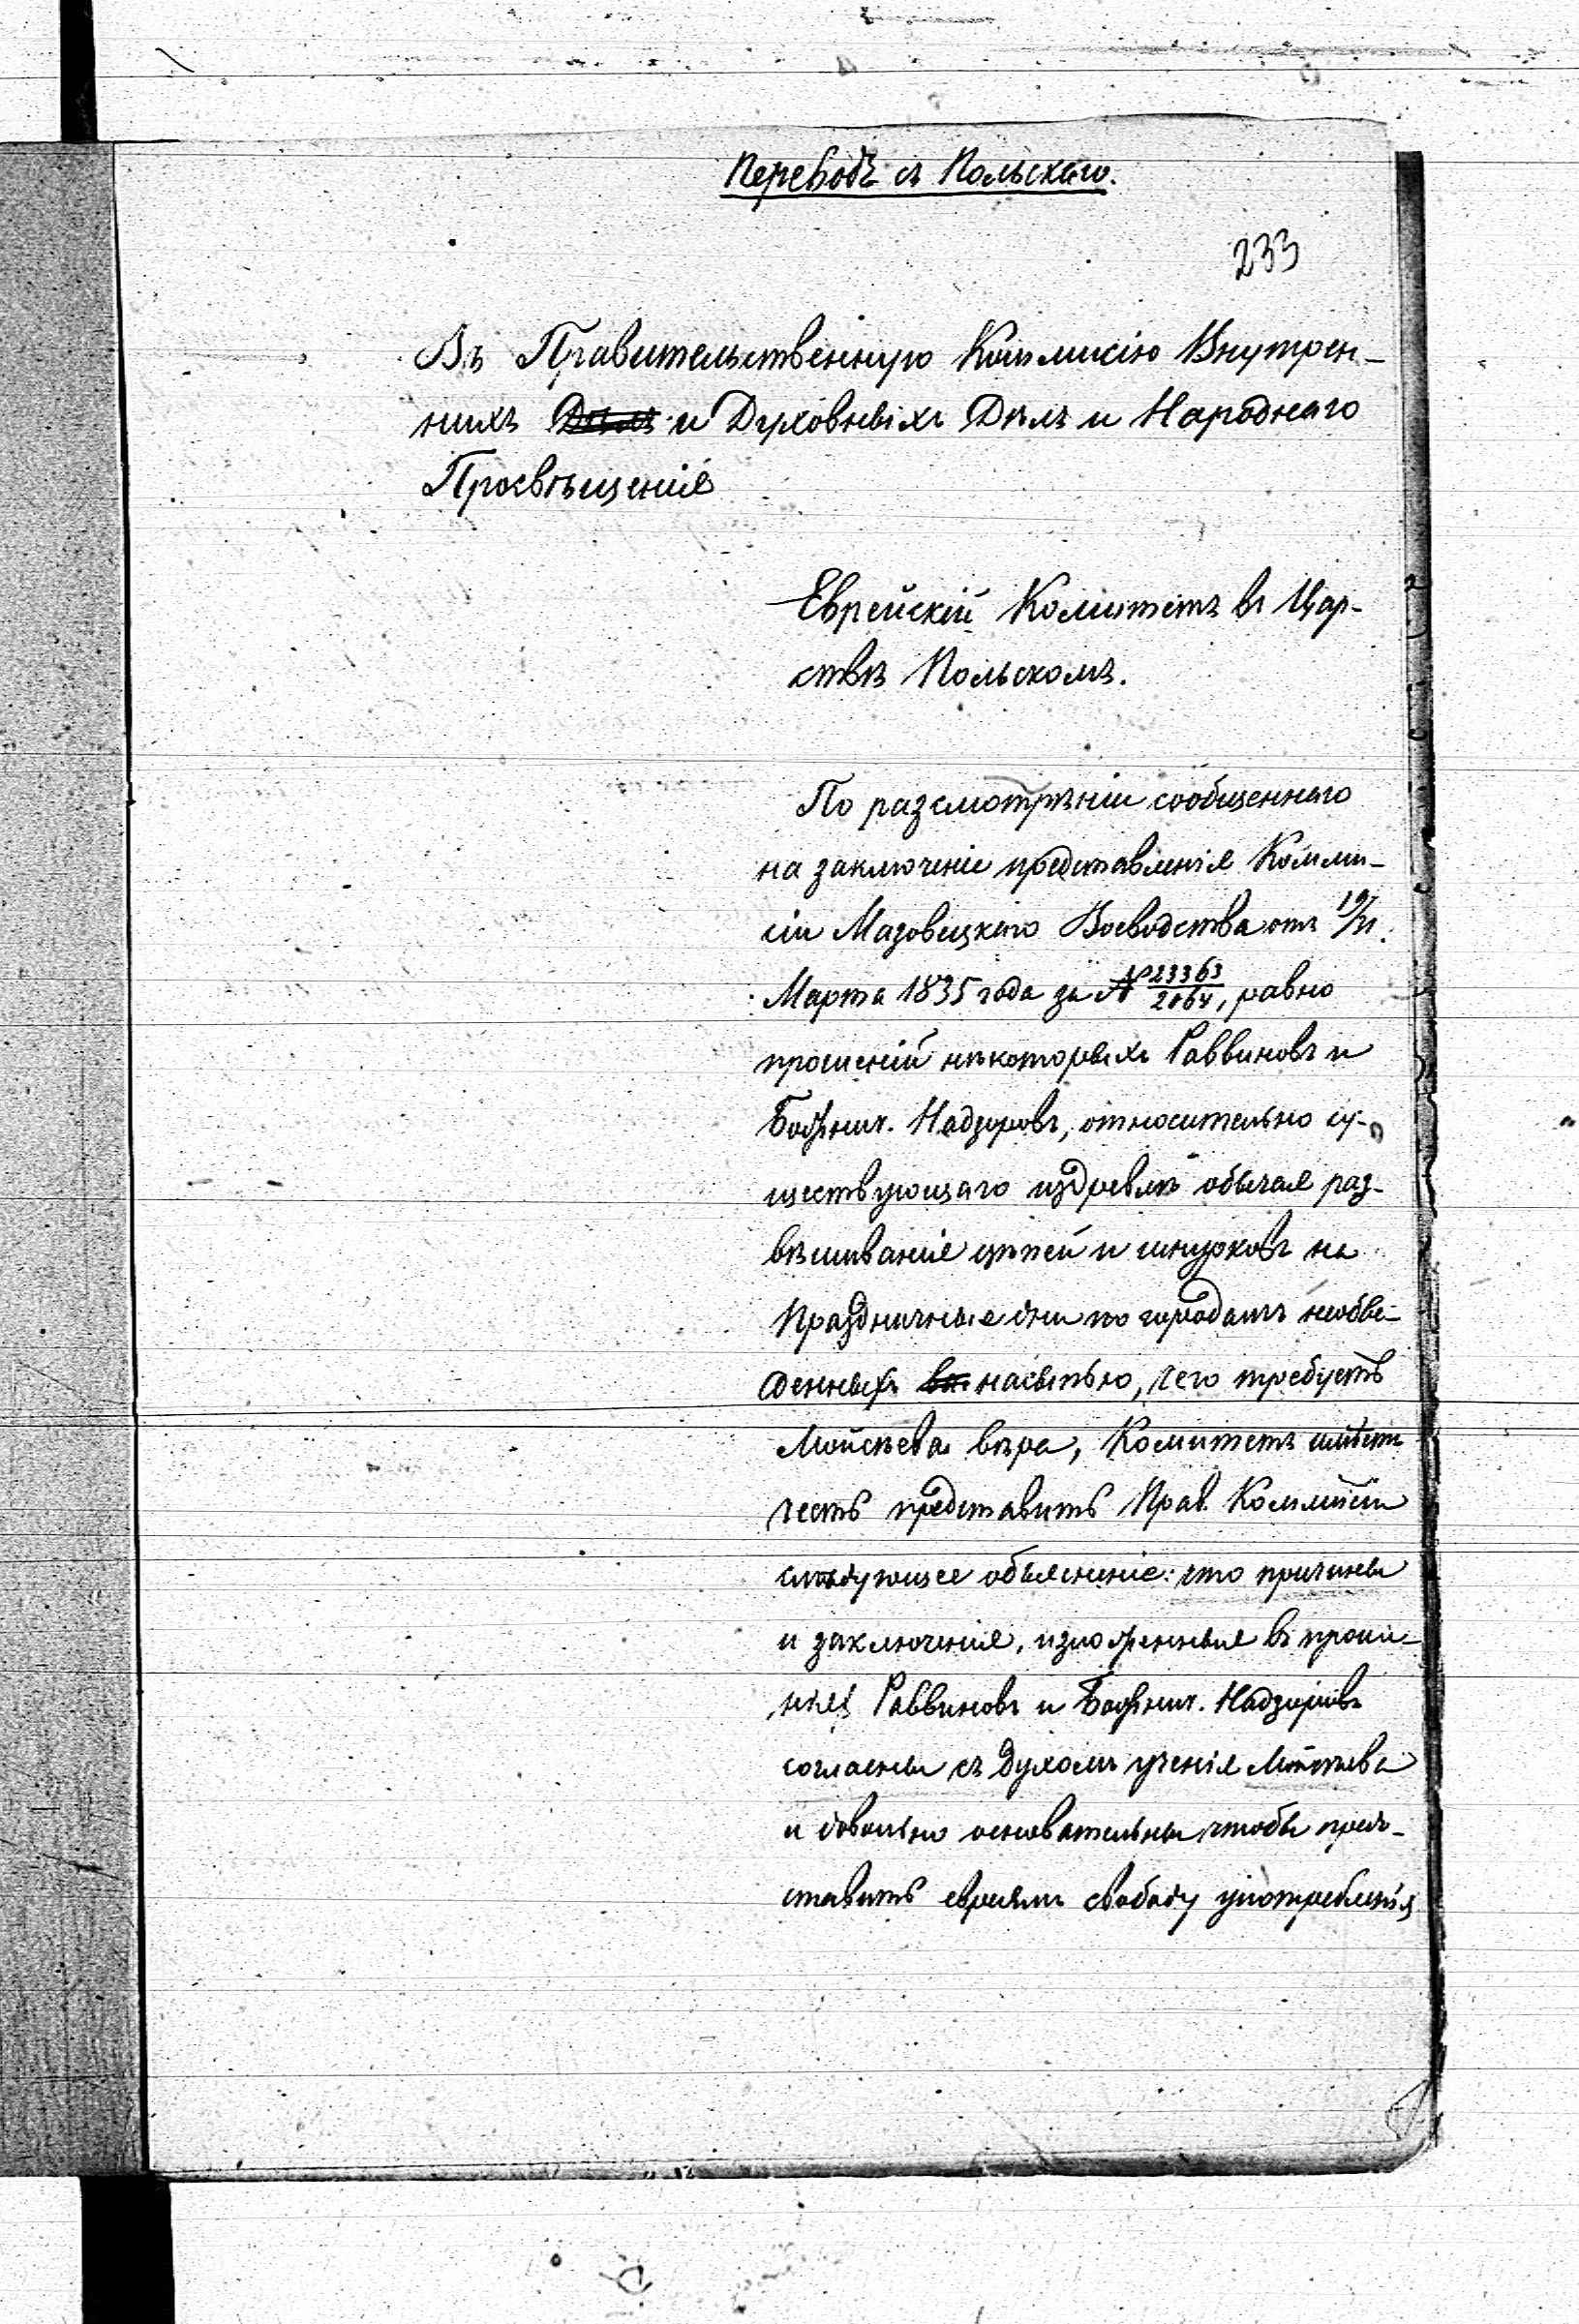 Переводъ съ Польскаго.
233
Въ Правительственную Коммисію Внутрен-
нихъ Дѣлъ и Духовныхъ Дѣлъ и Народнаго
Просвѣщенія
Еврейскій Комитетъ въ Цар-
ствѣ Польскомъ.
По разсмотрѣніи сообщеннаго
на заключеніе представленія Комми-
сіи Мазовецкаго Воеводства отъ 19/31
Марта 1835 года за № 23363/2064, равно
прошеній нѣкоторыхъ Раввиновъ и
Божнич. Надзоровъ, относительно су-
ществующаго издревлѣ обычая раз-
вѣшиванія цѣпей и шнурковъ на
Праздничные дни по городамъ необве-
денныхъ насыпью, чего требуетъ
Мойсѣева вѣра, Комитетъ имѣетъ
честь представить Прав. Коммисіи
слѣдующее объясненіе: что причины
и заключенія, изложенныя въ проше-
ніяхъ Раввиновъ и Божнич. Надзоровъ
согласны съ духомъ ученія Мойсѣева
и довольно основательны чтобы предо-
ставить евреямъ свободу употребленія